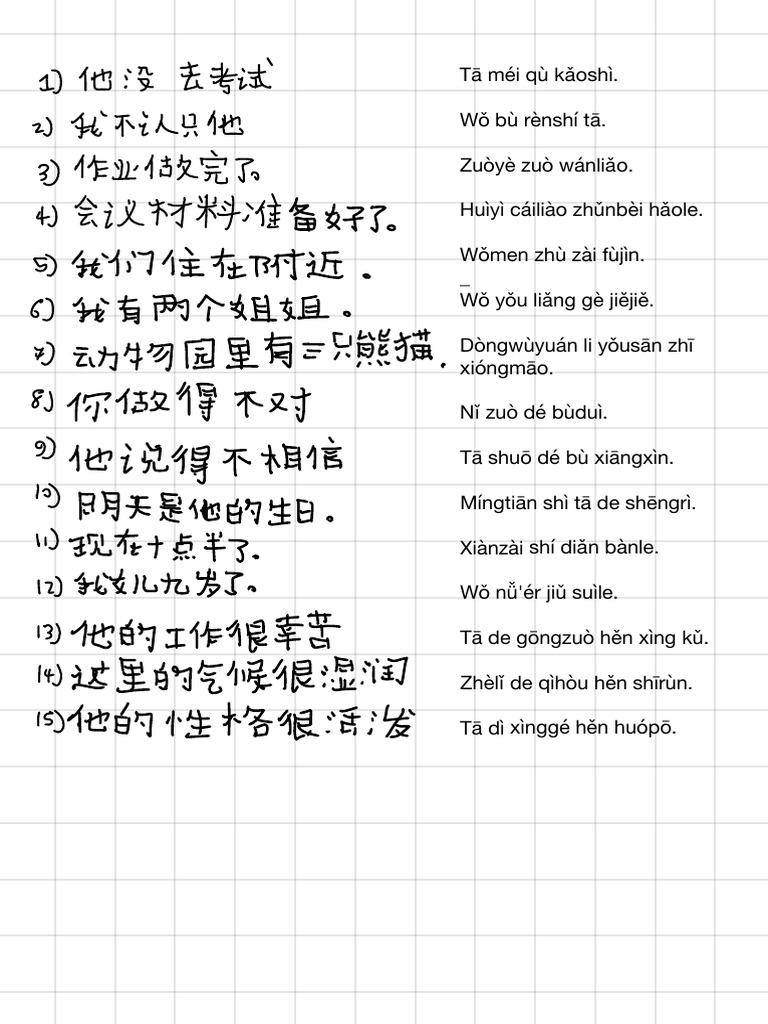 1) 他没去考试
Tā méi qù kǎoshì.
2) 我不认只他
Wǒ bù rènshí tā.
3) 作业做完了。
Zuòyè zuò wánliǎo.
4) 会议材料准备好了。
Huìyì cáiliào zhǔnbèi hǎole.
5) 我们住在附近。
Wǒmen zhù zài fùjìn.
6) 我有两个姐姐。
Wǒ yǒu liǎng gè jiějiě.
7) 动物园里有三只熊猫.
Dòngwùyuán li yǒusān zhī
xióngmāo.
8) 你做得不对
Nǐ zuò dé bùduì.
9) 他说得不相信
Tā shuō dé bù xiāngxìn.
10) 明天是他的生日。
Míngtiān shì tā de shēngrì.
11) 现在十点半了。
Xiànzài shí diǎn bànle.
12) 我女儿九岁了。
Wǒ nǚ'ér jiǔ suìle.
13) 他的工作很幸苦
Tā de gōngzuò hěn xìng kǔ.
14) 这里的气候很湿润
Zhèlǐ de qìhòu hěn shīrùn.
15) 他的性格很活泼
Tā dì xìnggé hěn huópō.